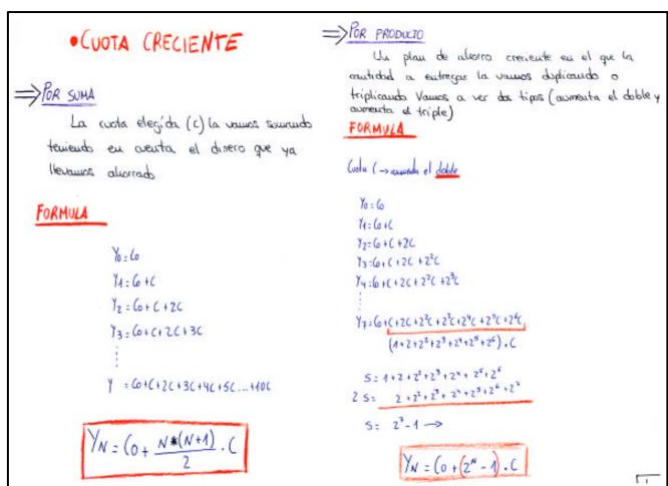 •CUOTA CRECIENTE
⇒POR SUMA
La cuota elegida (c) la vamos sumando
teniendo en cuenta el dinero que ya
llevamos ahorrado
FORMULA
Y0=C0
Y1=C0+C
Y2=C0+C+2C
Y3=C0+C+2C+3C
⋮
Y =C0+C+2C+3C+4C+5C...+10C
YN=C0+ N*(N+1)/2 ·C
⇒POR PRODUCTO
Un plan de ahorro creciente en el que la
cantidad a entregar la vamos duplicando o
triplicando Vamos a ver dos tipos (aumenta el doble y
aumenta el triple)
FORMULA
Cuota C→aumenta el doble
Y0=C0
Y1=C0+C
Y2=C0+C+2C
Y3=C0+C+2C+2²C
Y4=C0+C+2C+2²C+2³C
⋮
Y7=C0+C+2C+2²C+2³C+2⁴C+2⁵C+2⁶C
(1+2+2²+2³+2⁴+2⁵+2⁶)·C
S=1+2+2²+2³+2⁴+2⁵+2⁶
2S= 2+2²+2³+2⁴+2⁵+2⁶+2⁷
S= 2⁷-1→
YN=C0+(2ᴺ-1)·C